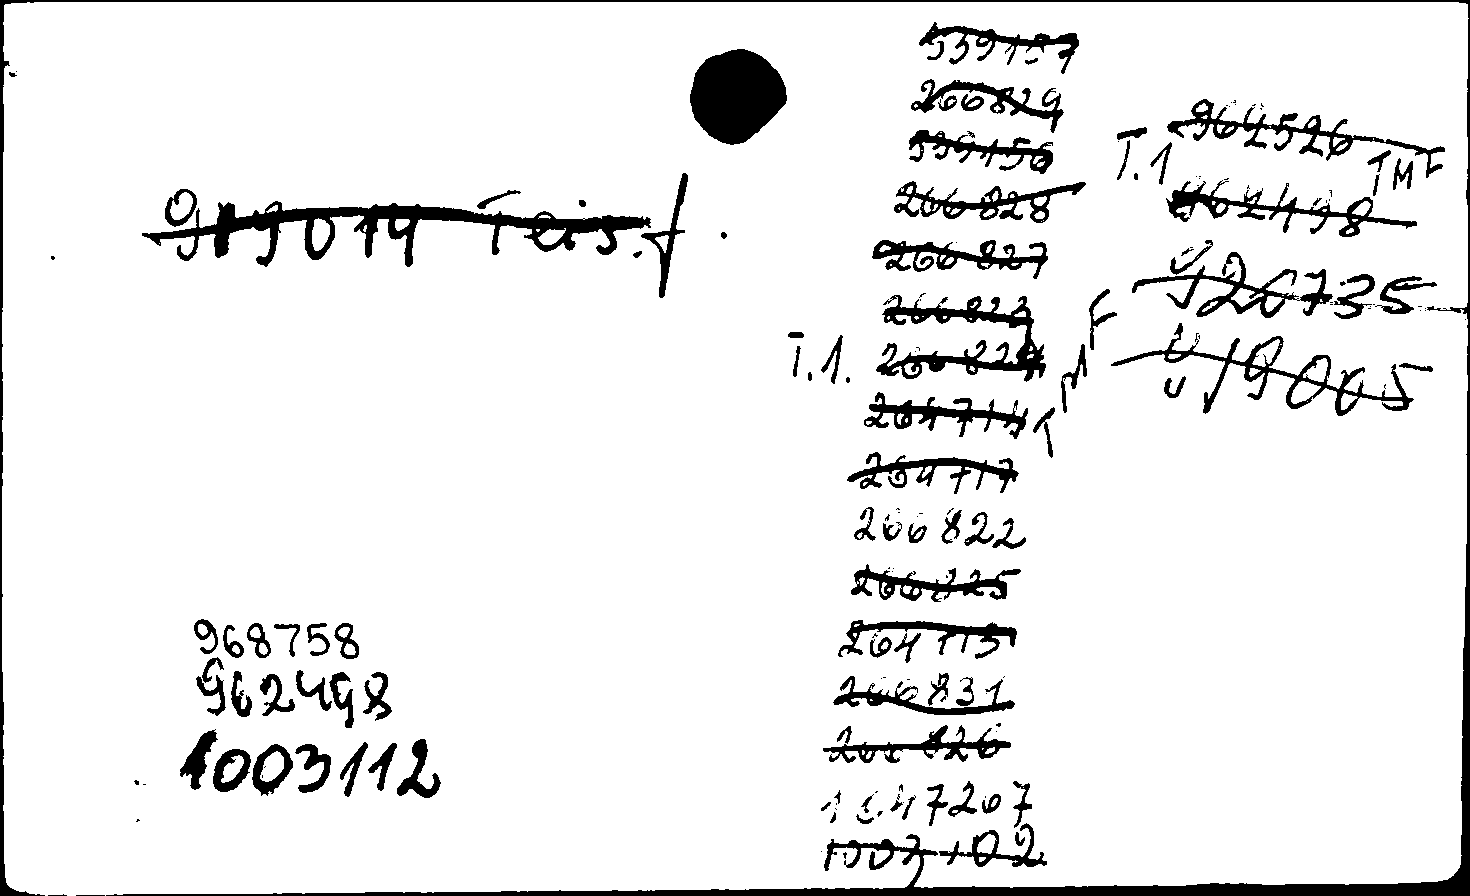 919014 Teis.
968758
962498
1003112
539157
266829
539156
266828
266827
266823
T.1. 266824
264714
TMF
264717
266822
266825
264713
266831
266826
1047207
1003102
T.1 962526 TMF
962498
920735
919005